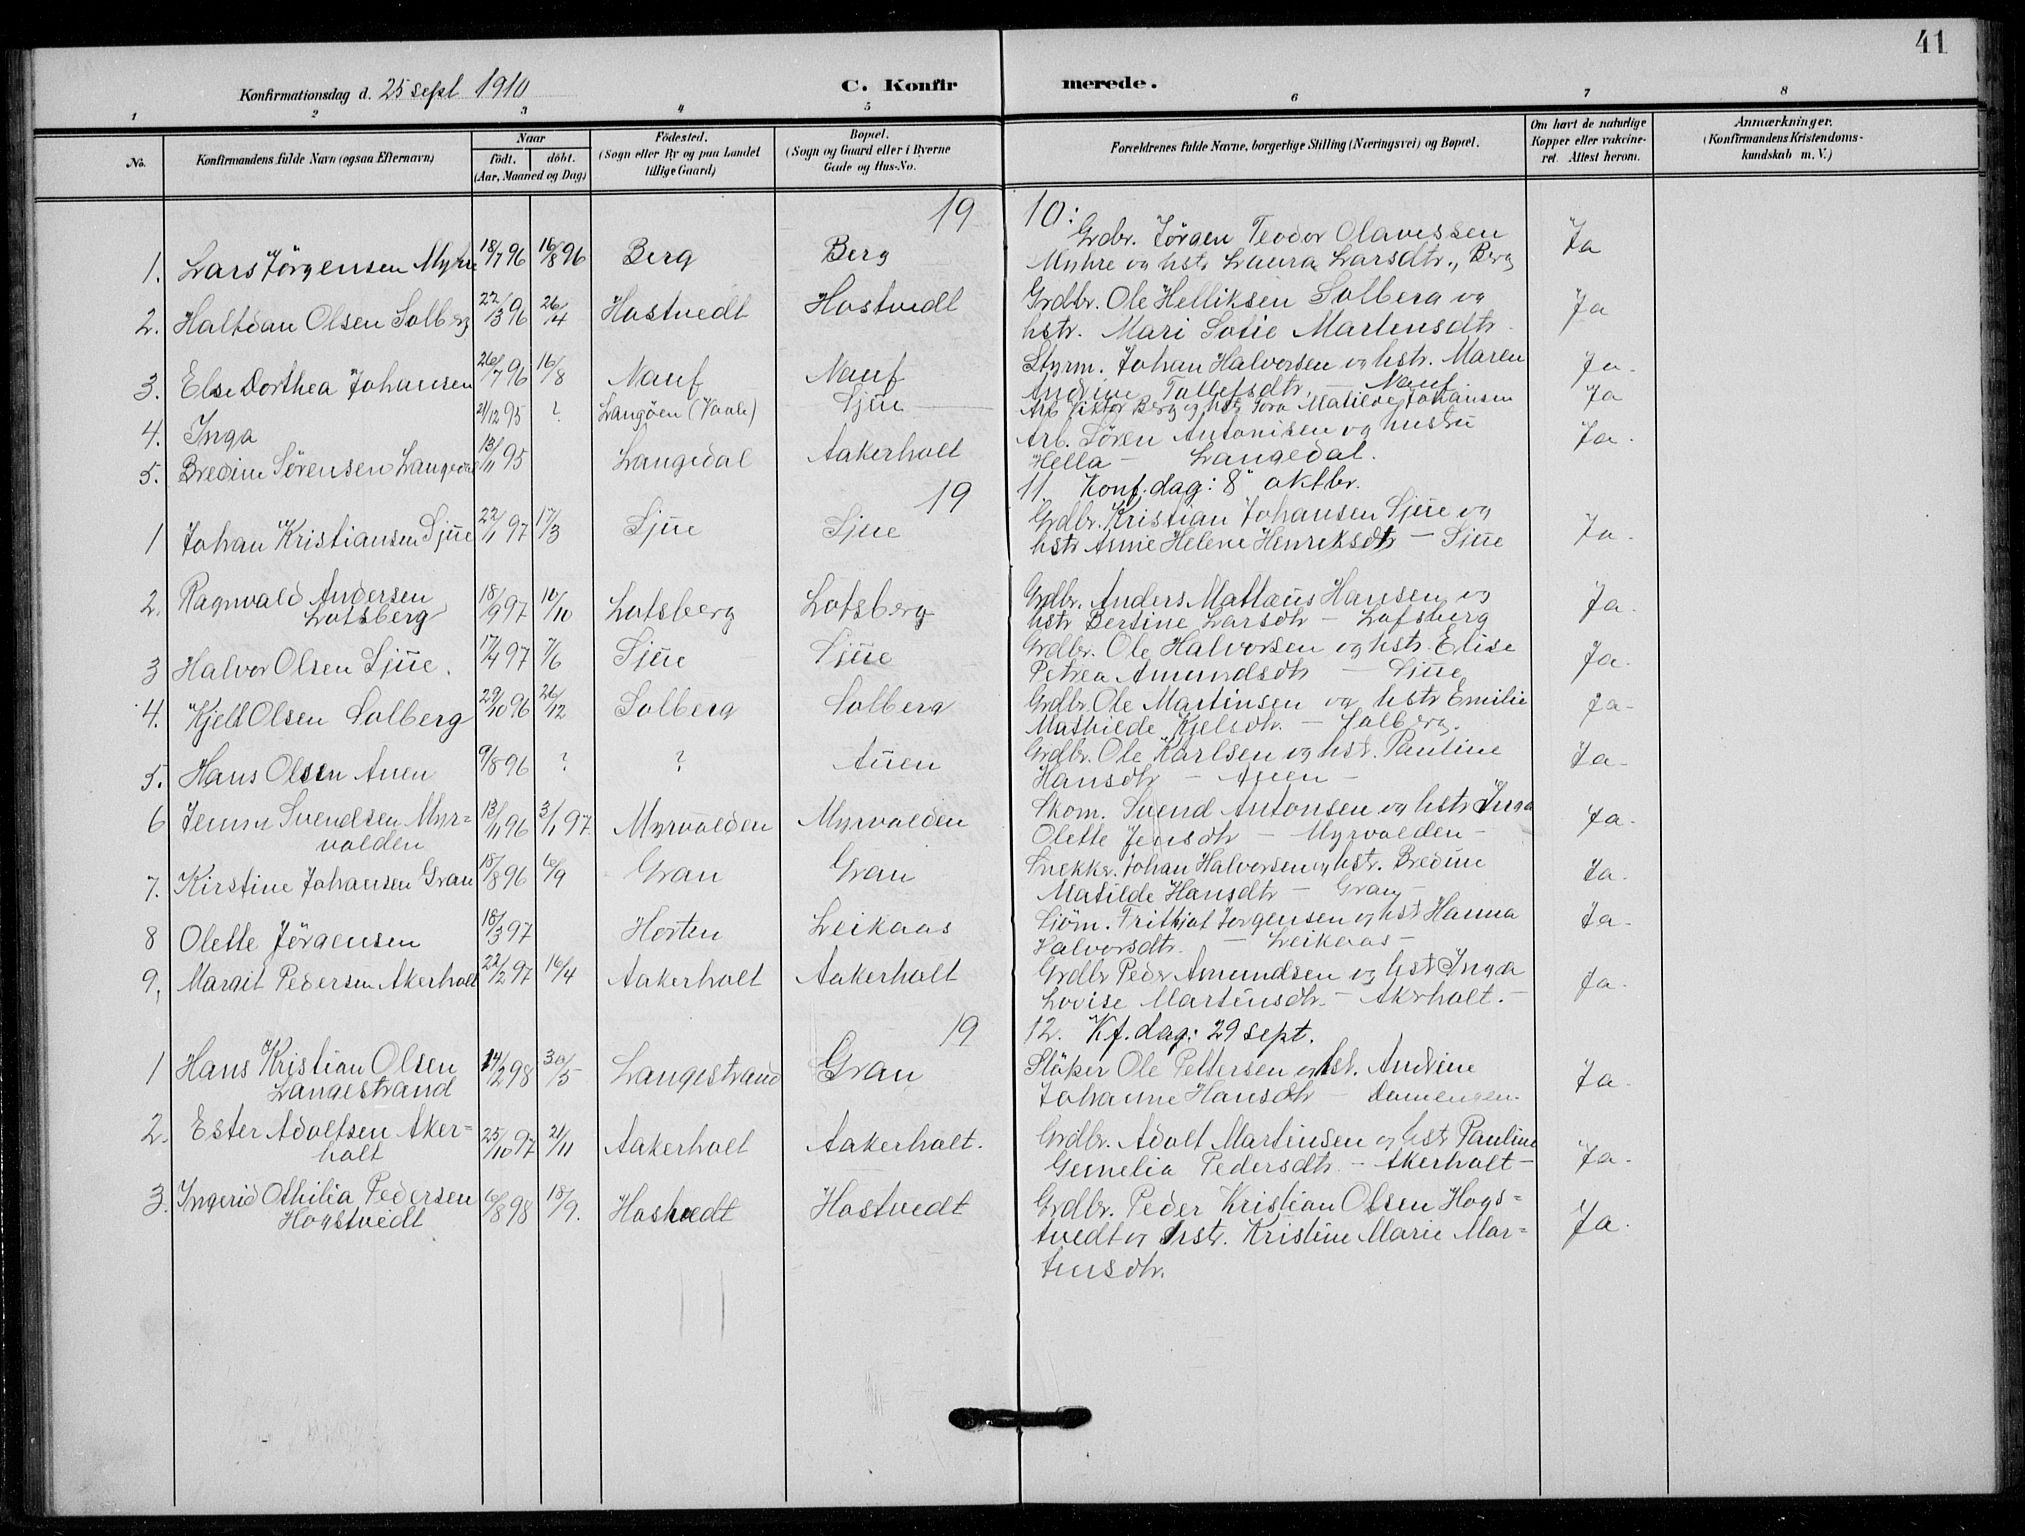 41
Konfirmationsdag d. 25 sept 1910
C. Konfirmerede.
1 2 3 4 5 6 7 8
No.
Konfirmandens fulde Navn (ogsaa Efternavn)
Naar
födt. döbt.
(Aar, Maaned og Dag)
Födested.
(Sogn eller By og paa Landet
tillige Gaard)
Bopæl.
(Sogn og Gaard eller i Byerne
Gade og Hus-No.
Forældrenes fulde Navne, borgerlige Stilling (Næringsvei) og Bopæl.
Om havt de naturlige
Kopper eller vakcine-
ret. Attest herom.
Anmærkninger.
(Konfirmandens Kristendoms-
kundskab m. V.)
19 10:
1. Lars Jörgensen Myhre 18/7 96 16/8 96 Berg Berg Grdbr. Jörgen Teodor Olavessen
Myhre og hstr Laura Larsdtr., Berg Ja
2. Halfdan Olsen Solberg 22/3 96 26/4 Hostvedt Hostvedt Grdbr. Ole Helliksen Solberg og
hstr. Mari Sofie Martensdtr. Ja
3. Else Dorthea Johansen 26/7 96 16/8 Nauf Nauf Styrm. Johan Halvorsen og hstr. Maren
Andrine Tollefsdtr, — Nauf Ja.
4. Inga 21/12 95 ? Langöen (Vaale) Sjue Arb Viktor Berg og hstr Tora Matilde Johansen Ja
5. Bredine Sörensen Langedal 13/11 95 Langedal Aakerholt Arb. Sören Antonisen og hustru
Hella — Langedal. Ja.
19 11. Konf. dag: 8 oktbr.
1 Johan Kristiansen Sjue 22/1 97 17/3 Sjue Sjue Grdbr. Kristian Johansen Sjue og
hstr Anne Helene Henriksdtr — Sjue Ja.
2. Ragnvald Andersen
Lofsberg 18/9 97 10/10 Lofsberg Lofsberg Grdbr. Anders Mattæus Hansen og
hstr Bertine Larsdtr — Lofsberg Ja.
3 Halvor Olsen Sjue. 17/4 97 7/6 Sjue Sjue Grdbr. Ole Halvorsen og hstr. Elise
Petrea Amundsdtr — Sjue Ja.
4. Kjell Olsen Solberg 29/10 96 26/12 Solberg Solberg Grdbr. Ole Martinsen og hstr Emilie
Mathilde Kjelsdtr. — Solberg. Ja-
5. Hans Olsen Auen 9/8 96 ? ? Auen Grdbr. Ole Karlsen og hst. Pauline
Hansdtr — Auen — Ja-
6 Jenny Svendsen Myr-
volden 13/11 96 3/1 97 Myrvolden Myrvolden Skom. Svend Antonsen og hstr Inga
Olette Jensdtr — Myrvolden — Ja.
7. Kirstine Johansen Gran 18/8 96 6/9 Gran Gran Snekker. Johan Halvorsen og hstr. Bredine
Matilde Hansdtr — Gran — Ja.
8 Olette Jörgensen 18/3 97 Horten Leikaas Sjöm. Frithjof Jörgensen og hst Hanna
Halvorsdtr. — Leikaas — Ja.
9. Margit Pedersen Akerholt 22/2 97 16/4 Aakerholt Aakerholt Grdbr Peder Amundsen og hst Inga
Lovise Martinsdtr. — Akerholt. — Ja.
19 12. Kf. dag: 29 sept.
1 Hans Kristian Olsen
Langestrand 14/2 98 30/5 Langestrand Gran Stöper Ole Pettersen og hst. Andrine
Johanne Hansdtr — Ja.
2. Ester Adolfsen Aker-
holt 25/10 97 21/11 Aakerholt Aakerholt. Grdbr. Adolf Martinsen og hst Pauline
Pedersdtr. — Akerholt — Ja.
3. Ingerid Othilia Pedersen
Hogstvedt 6/8 98 18/9. Hostvedt Hostvedt Grdbr. Peder Kristian Olsen Hogs-
tvedt og hstr. Kristine Marie Mar-
tinsdtr. Ja.